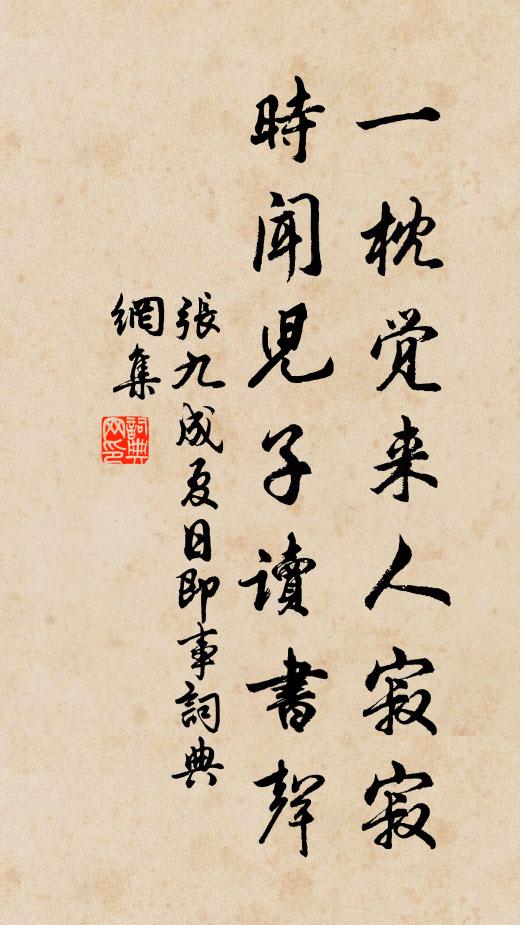 一枕觉来人寂寂
時聞兒子讀書聲
張九成夏日即事詞典
網集
詞典
网印